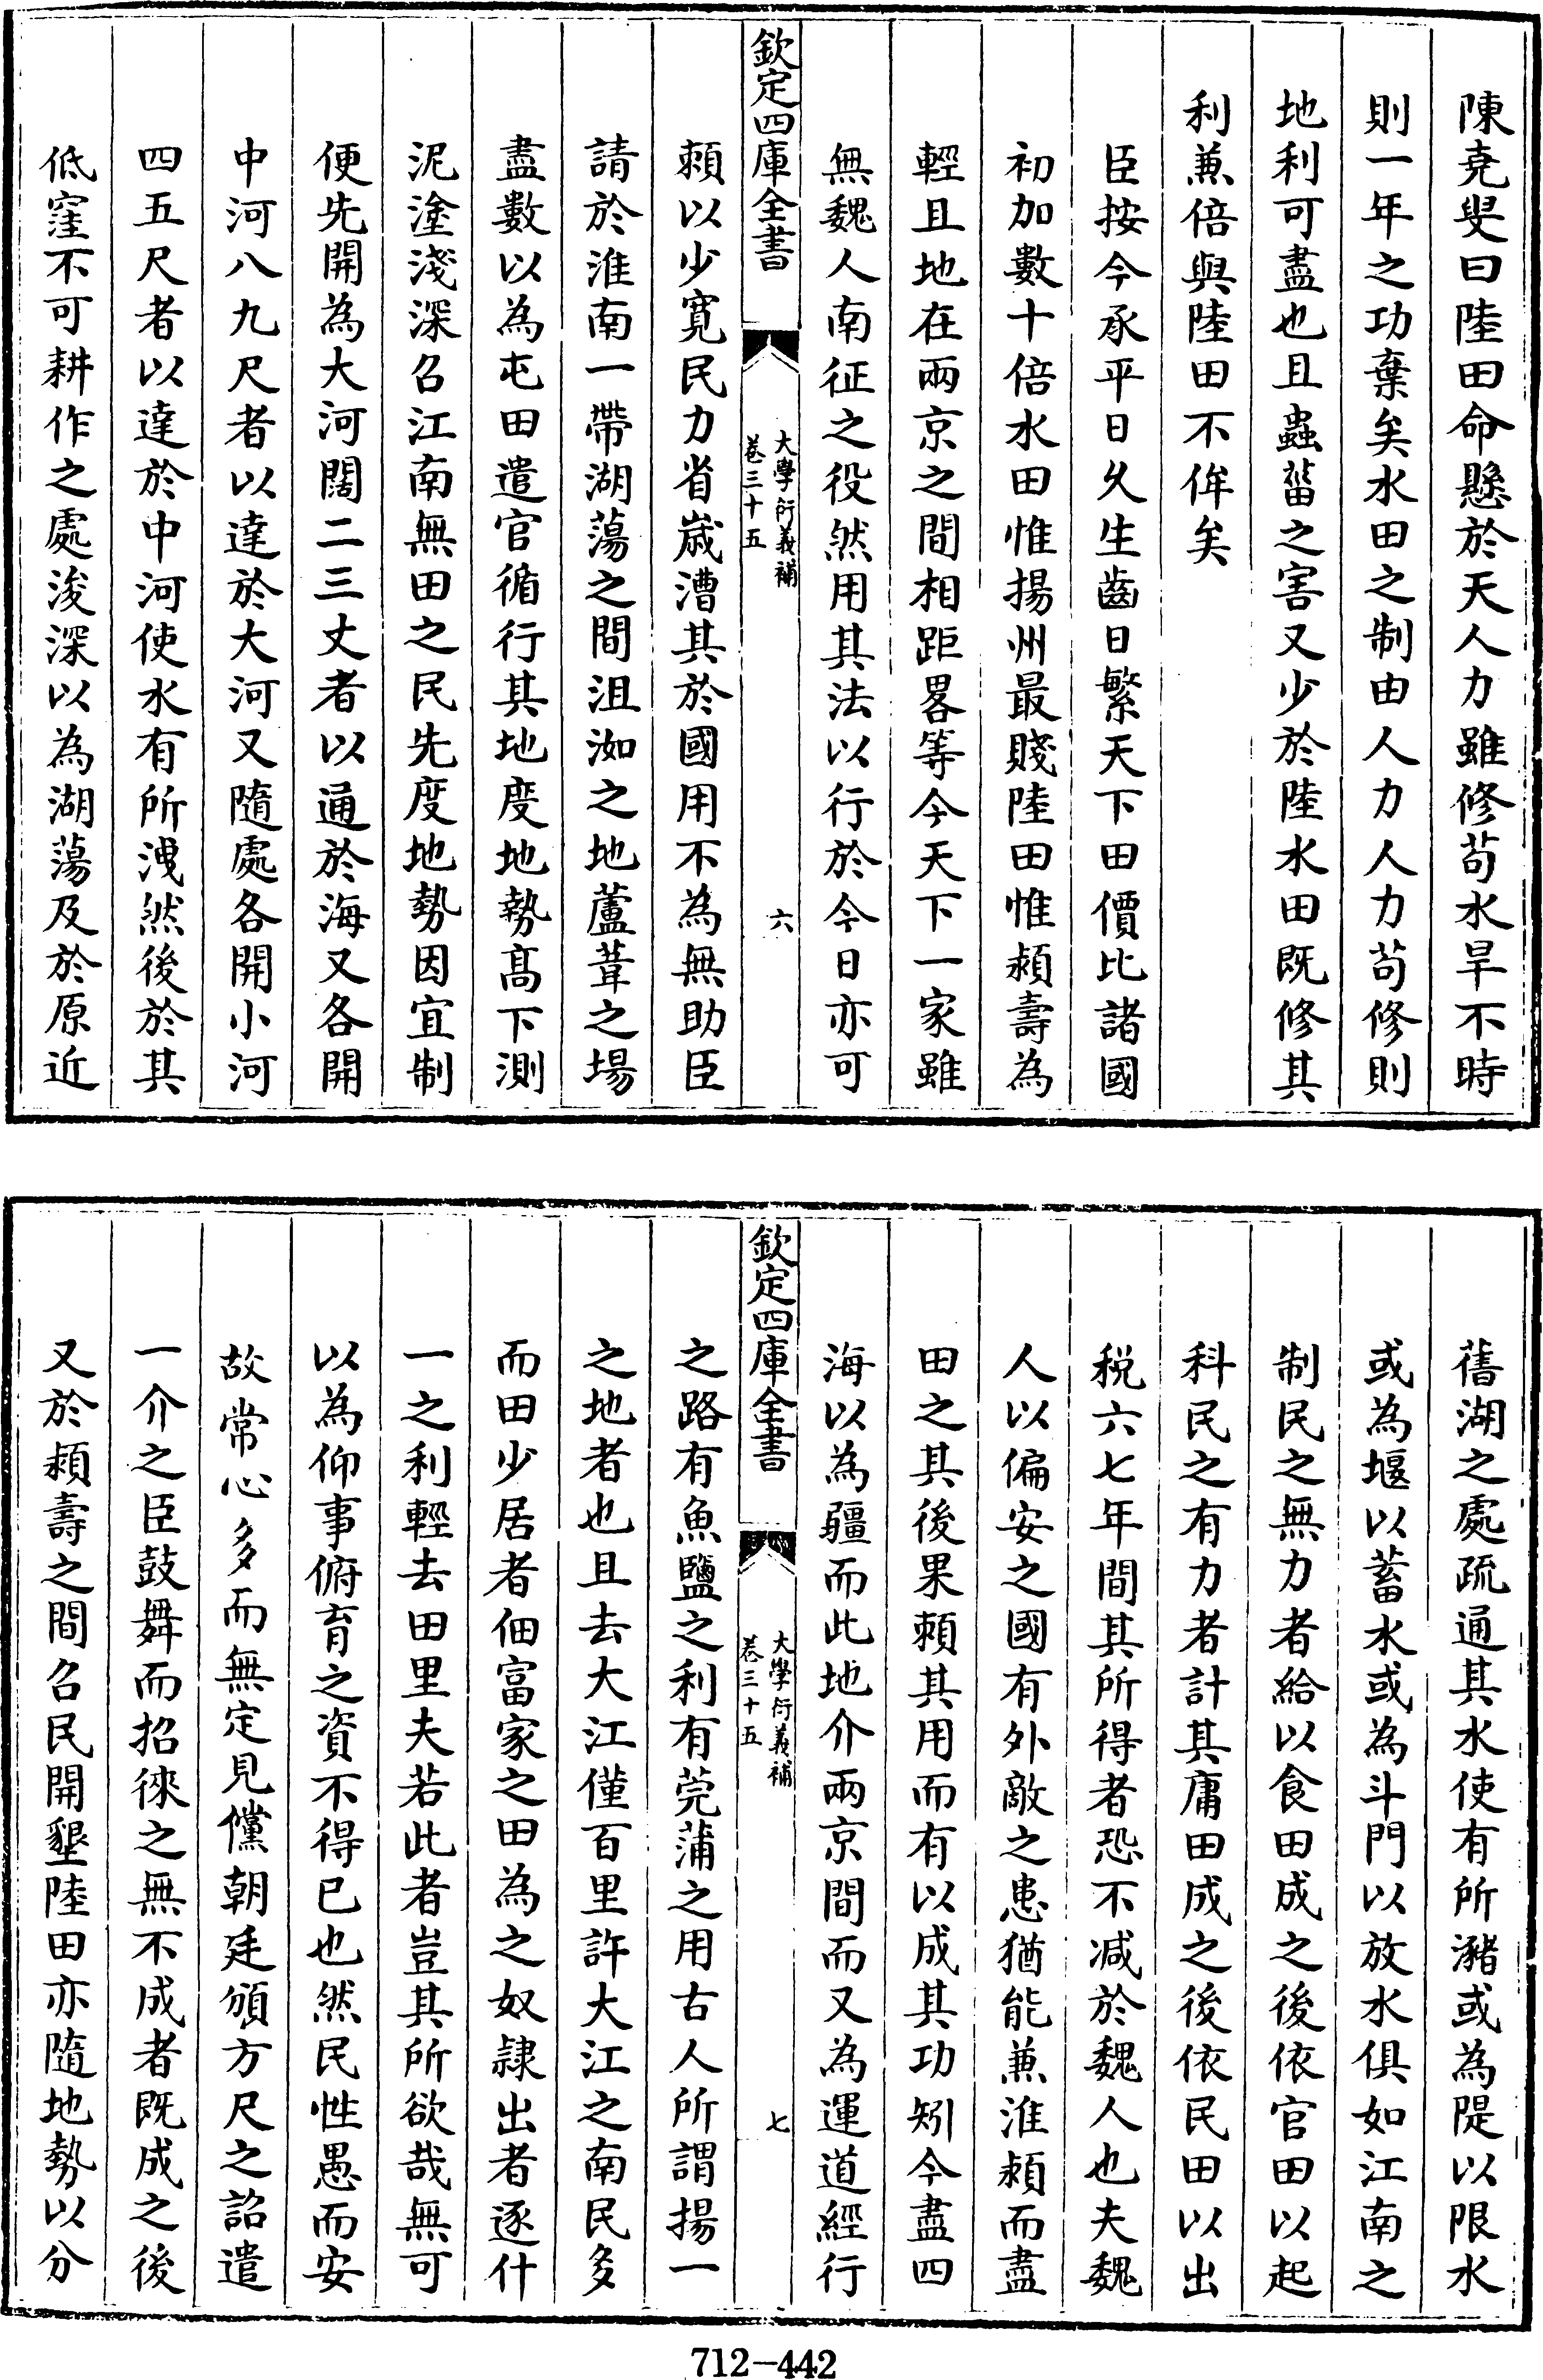 陳堯叟曰陸田命懸於天人力雖修苟水旱不時
則一年之功棄矣水田之制由人力人力苟修則
地利可盡也且蟲菑之害又少於陸水田既修其
利兼倍與陸田不侔矣
臣按今承平日久生齒日繁天下田價比諸國
初加數十倍水田惟揚州最賤陸田惟頴壽為
輕且地在兩京之間相距畧等今天下一家雖
無魏人南征之役然用其法以行於今日亦可
欽定四庫全書
大學衍義補
卷三十五
六
頼以少寛民力省嵗漕其於國用不為無助臣
請於淮南一帶湖蕩之間沮洳之地蘆葦之場
盡數以為屯田遣官循行其地度地勢髙下測
泥塗淺深召江南無田之民先度地勢因宜制
便先開為大河闊二三丈者以通於海又各開
中河八九尺者以達於大河又隨處各開小河
四五尺者以達於中河使水有所洩然後於其
低窪不可耕作之處浚深以為湖蕩及於原近
舊湖之處疏通其水使有所瀦或為隄以限水
或為堰以蓄水或為斗門以放水俱如江南之
制民之無力者給以食田成之後依官田以起
科民之有力者計其庸田成之後依民田以出
税六七年間其所得者恐不减於魏人也夫魏
人以偏安之國有外敵之患猶能兼淮頴而盡
田之其後果頼其用而有以成其功矧今盡四
海以為疆而此地介兩京間而又為運道經行
欽定四庫全書
大學衍義補
卷三十五
七
之路有魚鹽之利有莞蒲之用古人所謂揚一
之地者也且去大江僅百里許大江之南民多
而田少居者佃富家之田為之奴隷出者逐什
一之利輕去田里夫若此者豈其所欲哉無可
以為仰事俯育之資不得已也然民性愚而安
故常心多而無定見儻朝廷頒方尺之詔遣
一介之臣鼓舞而招徠之無不成者既成之後
又於頴壽之間召民開墾陸田亦隨地勢以分
712-442